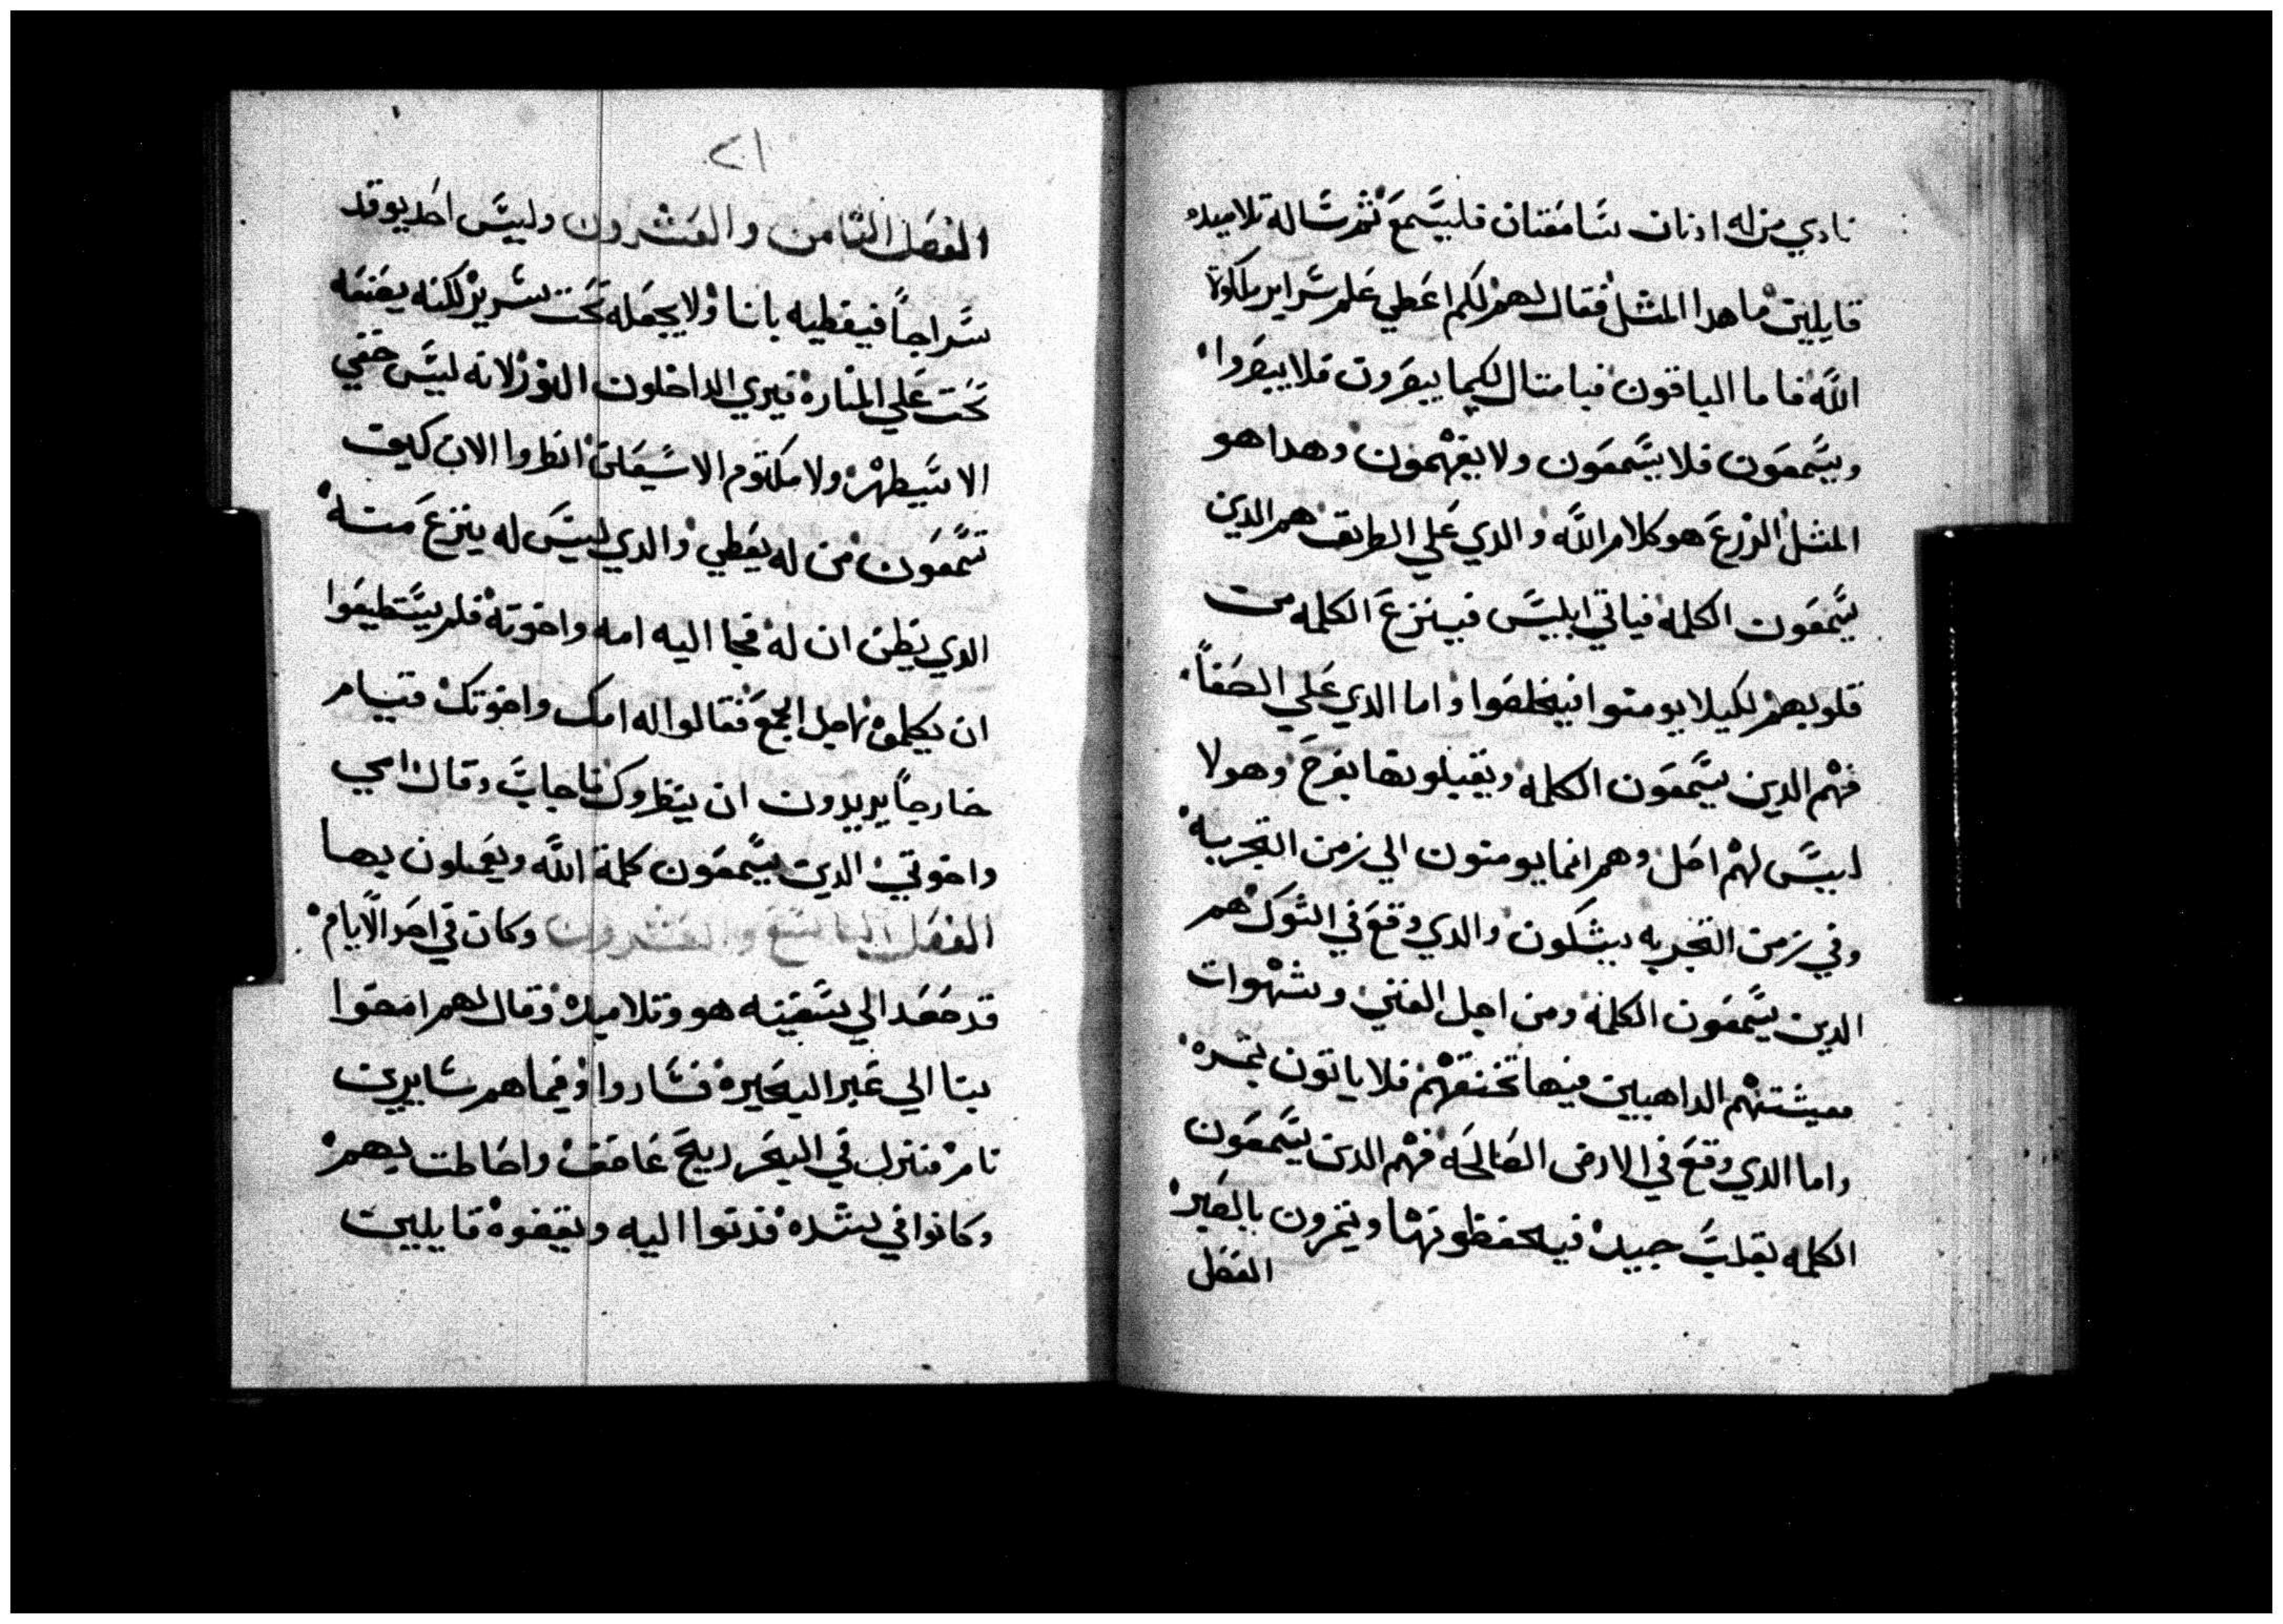 نادي من له ادنان سامعتان فليسمع ثم ساله تلاميده
قايلين ما هدا المثل فقال لهم لكم اعطي علم سراير ملكوة
الله فاما الباقون فبامتال لكيما يبصرون فلا يبصروا
ويسمعون فلا يسمعون ولا يفهمون وهدا هو
المثل الزرع هو كلام الله والدي علي الطريق هم الدين
يسمعون الكلمه فياتي ابليس فينزع الكلمه من
قلوبهم لكيلا يومنوا فيخلصوا واما الدي علي الصفاً
فهم الدين يسمعون الكلمه ويقبلونها بفرح وهولا
ليس لهم اصل وهم انما يومنون الي زمن التجربه
وفي زمن التجربه يشكون والدي وقع في الشوك هم
الدين يسمعون الكلمه ومن اجل الغني وشهوات
معيشتهم الداهبين فيها تخنقهم فلا ياتون بثمره
واما الدي وقع في الارض الصالحه فهم الدين يسمعون
الكلمه بقلب جيد فيحفظونها ويثمرون بالصبر
الفصل
٢١
الفصل الثامن والعشرون وليس احد يوقد
سراجاً فيغطيه باناا ولا يجعله تحت سرير لكنه يضعه
تحت علي المناره فيري الداخلون النور لانه ليس خفي
الا سيظهر ولا مكتوم الا سيعلن انظروا الان كيف
تسمعون من له يعطي والدي ليس له ينزع منه
الدي يظن ان له فجا اليه امه واخوته فلم يستطيعوا
ان يكلموه لاجل الجمع فقالوا له امك واخوتك قيام
خارجاً يريدون ان ينظروك فاجاب وقال امي
واخوتي الدين يسمعون كلمة الله ويعملون بها
الفصل التاسع والعشرون وكان في احد الايام
قد صعد الي سفينه هو وتلاميده وقال لهم امضوا
بنا الي عبر البحيره فساروا وفيما هم سايرين
نام فنزل في البحر ريح عاصف واحاطت بهم
وكانوا في شده فدنوا اليه ويقضوه قايلين